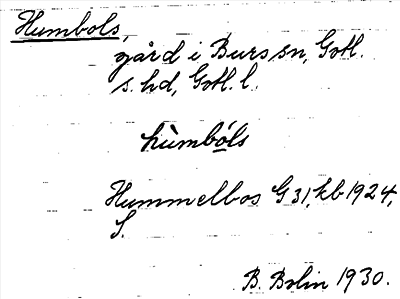 Humbols,
gård i Burs sn, Gotl.
s. hd, Gotl. l.
hùmbóls
Hummelbos G 31, kb 1924,
S.
B. Bolin 1930.